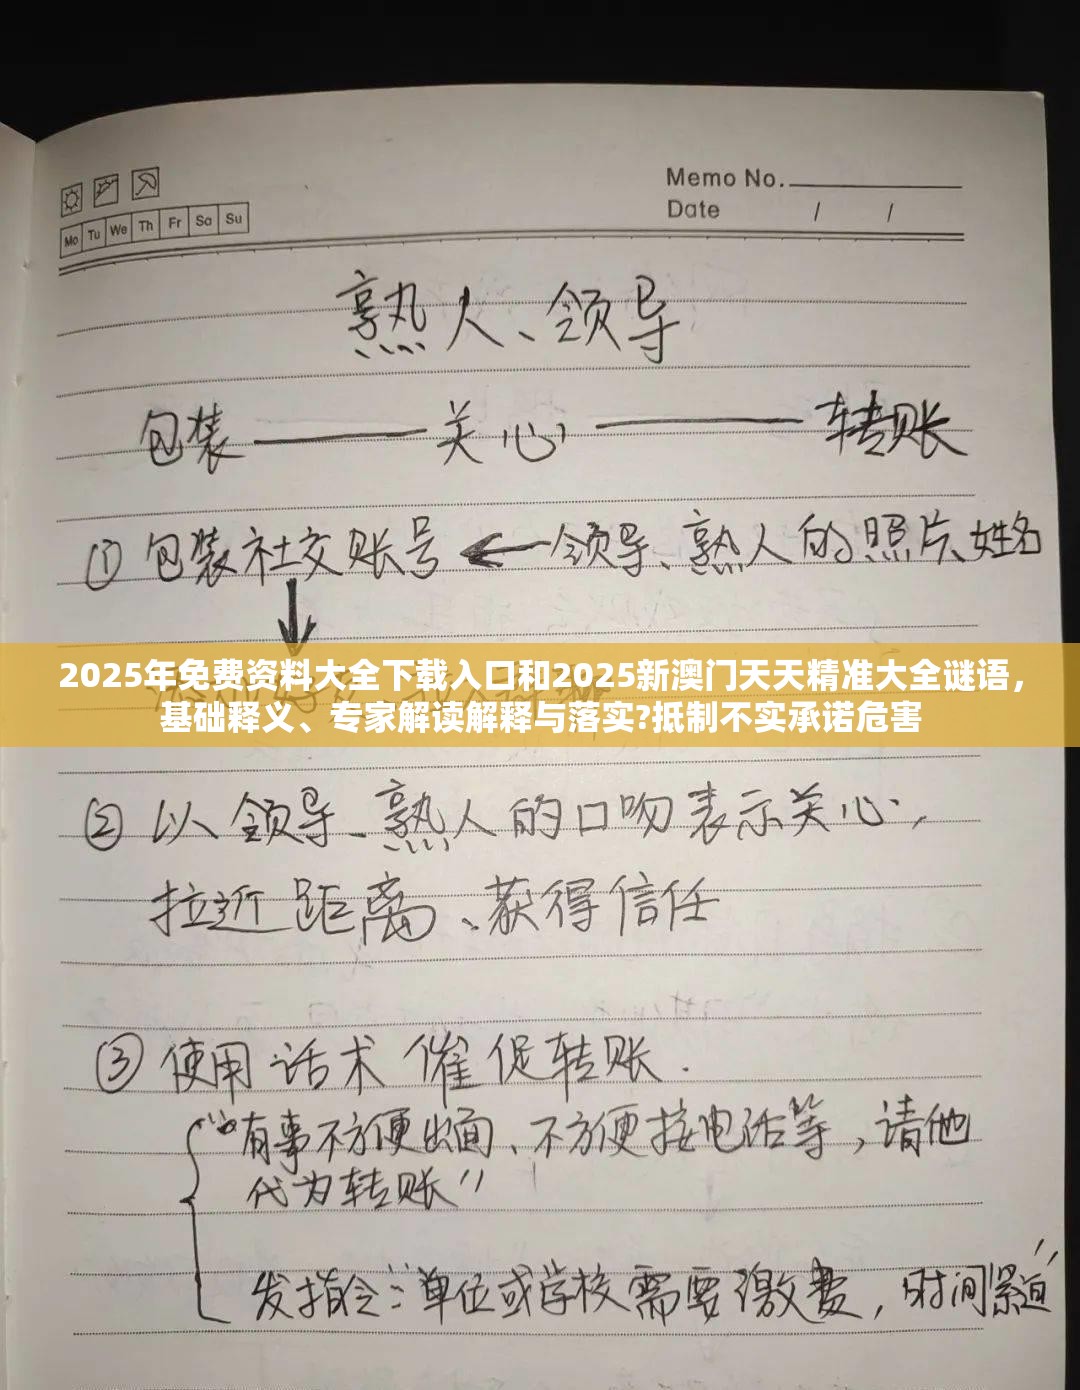 Memo No.
Date / /
Mo Tu We Th Fr Sa Su
熟人、领导
包装——关心——转账
① 包装社交账号←领导、熟人的照片、姓名
2025年免费资料大全下载入口和2025新澳门天天精准大全谜语，
基础释义、专家解读解释与落实?抵制不实承诺危害
② 以领导、熟人的口吻表示关心，
拉近距离、获得信任
③ 使用话术催促转账.
“有事不方便出面、不方便接电话等，请他
代为转账”
发指令：“单位或学校需要缴费，时间紧迫”